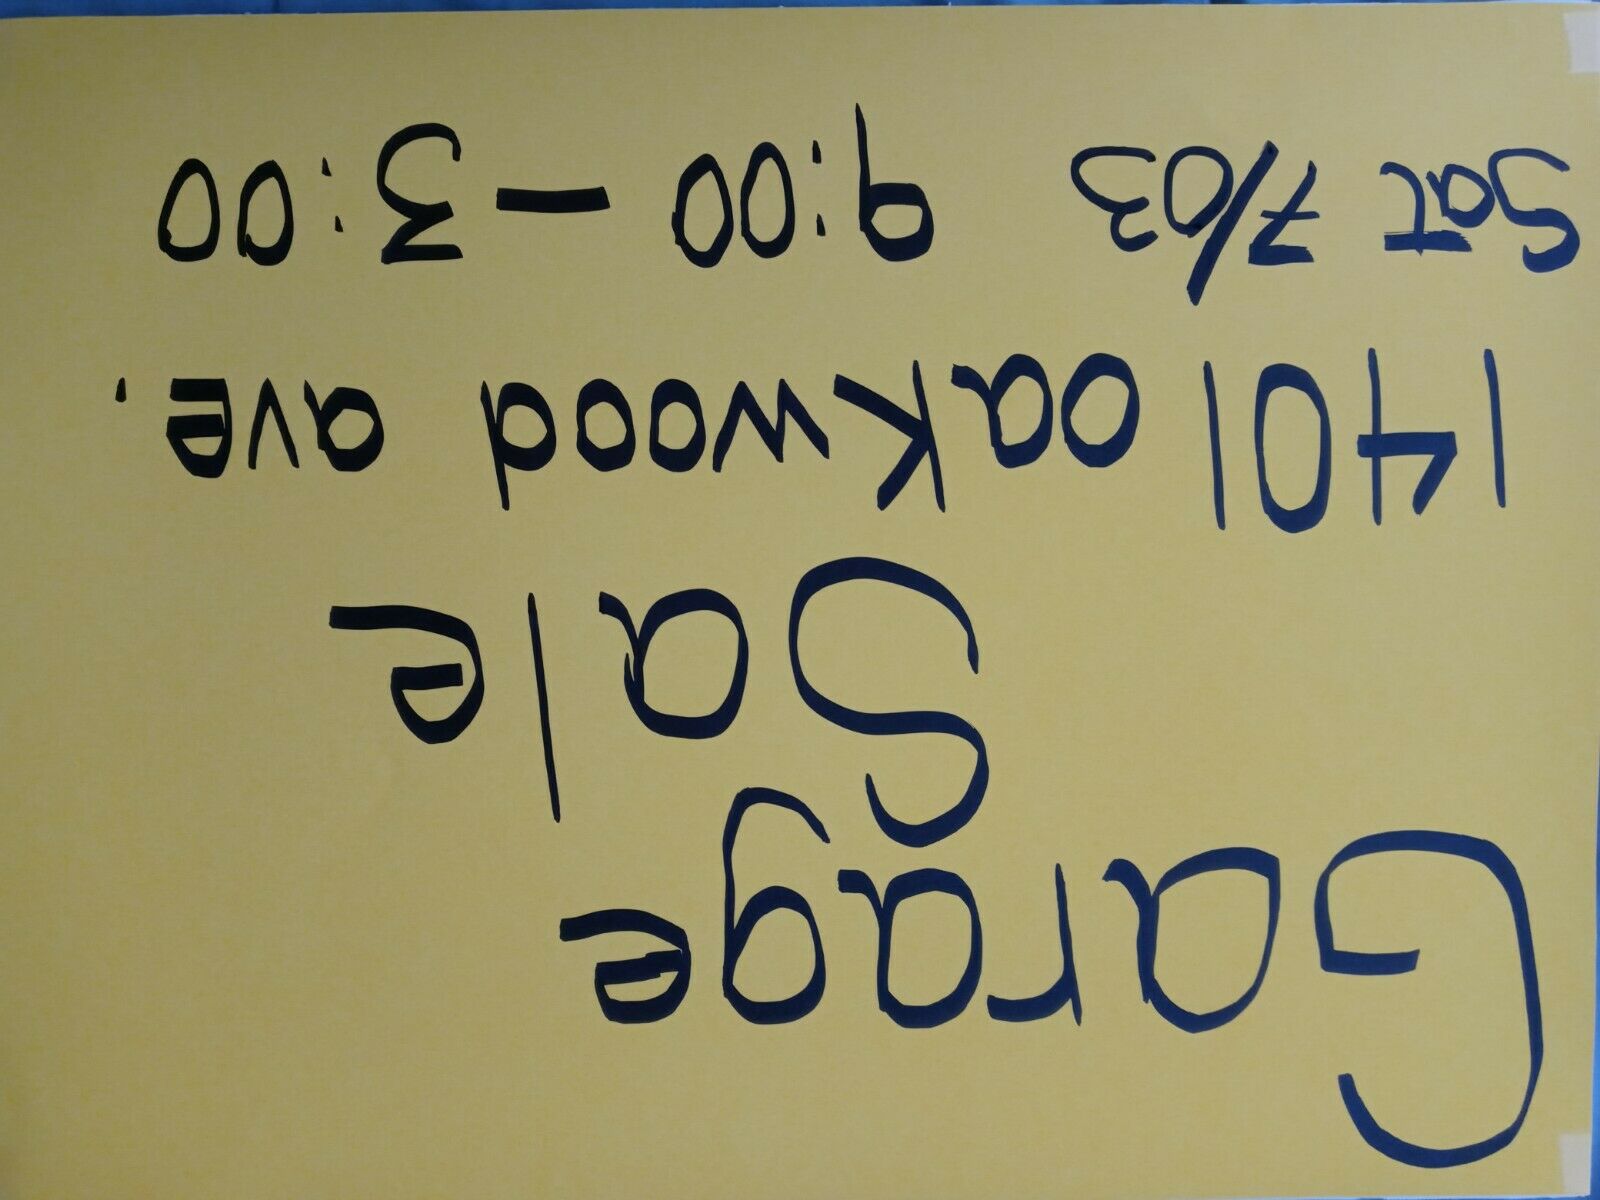 Garage
Sale
1401 oakwood ave.
Sat 7/03 9:00 - 3:00